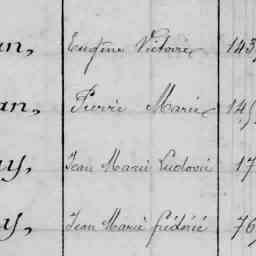 an, Eugène Victoire 143
an, Pierre Marie 145
ay, Jean Marie Ludovic 17
y, Jean Marie frédéric 76